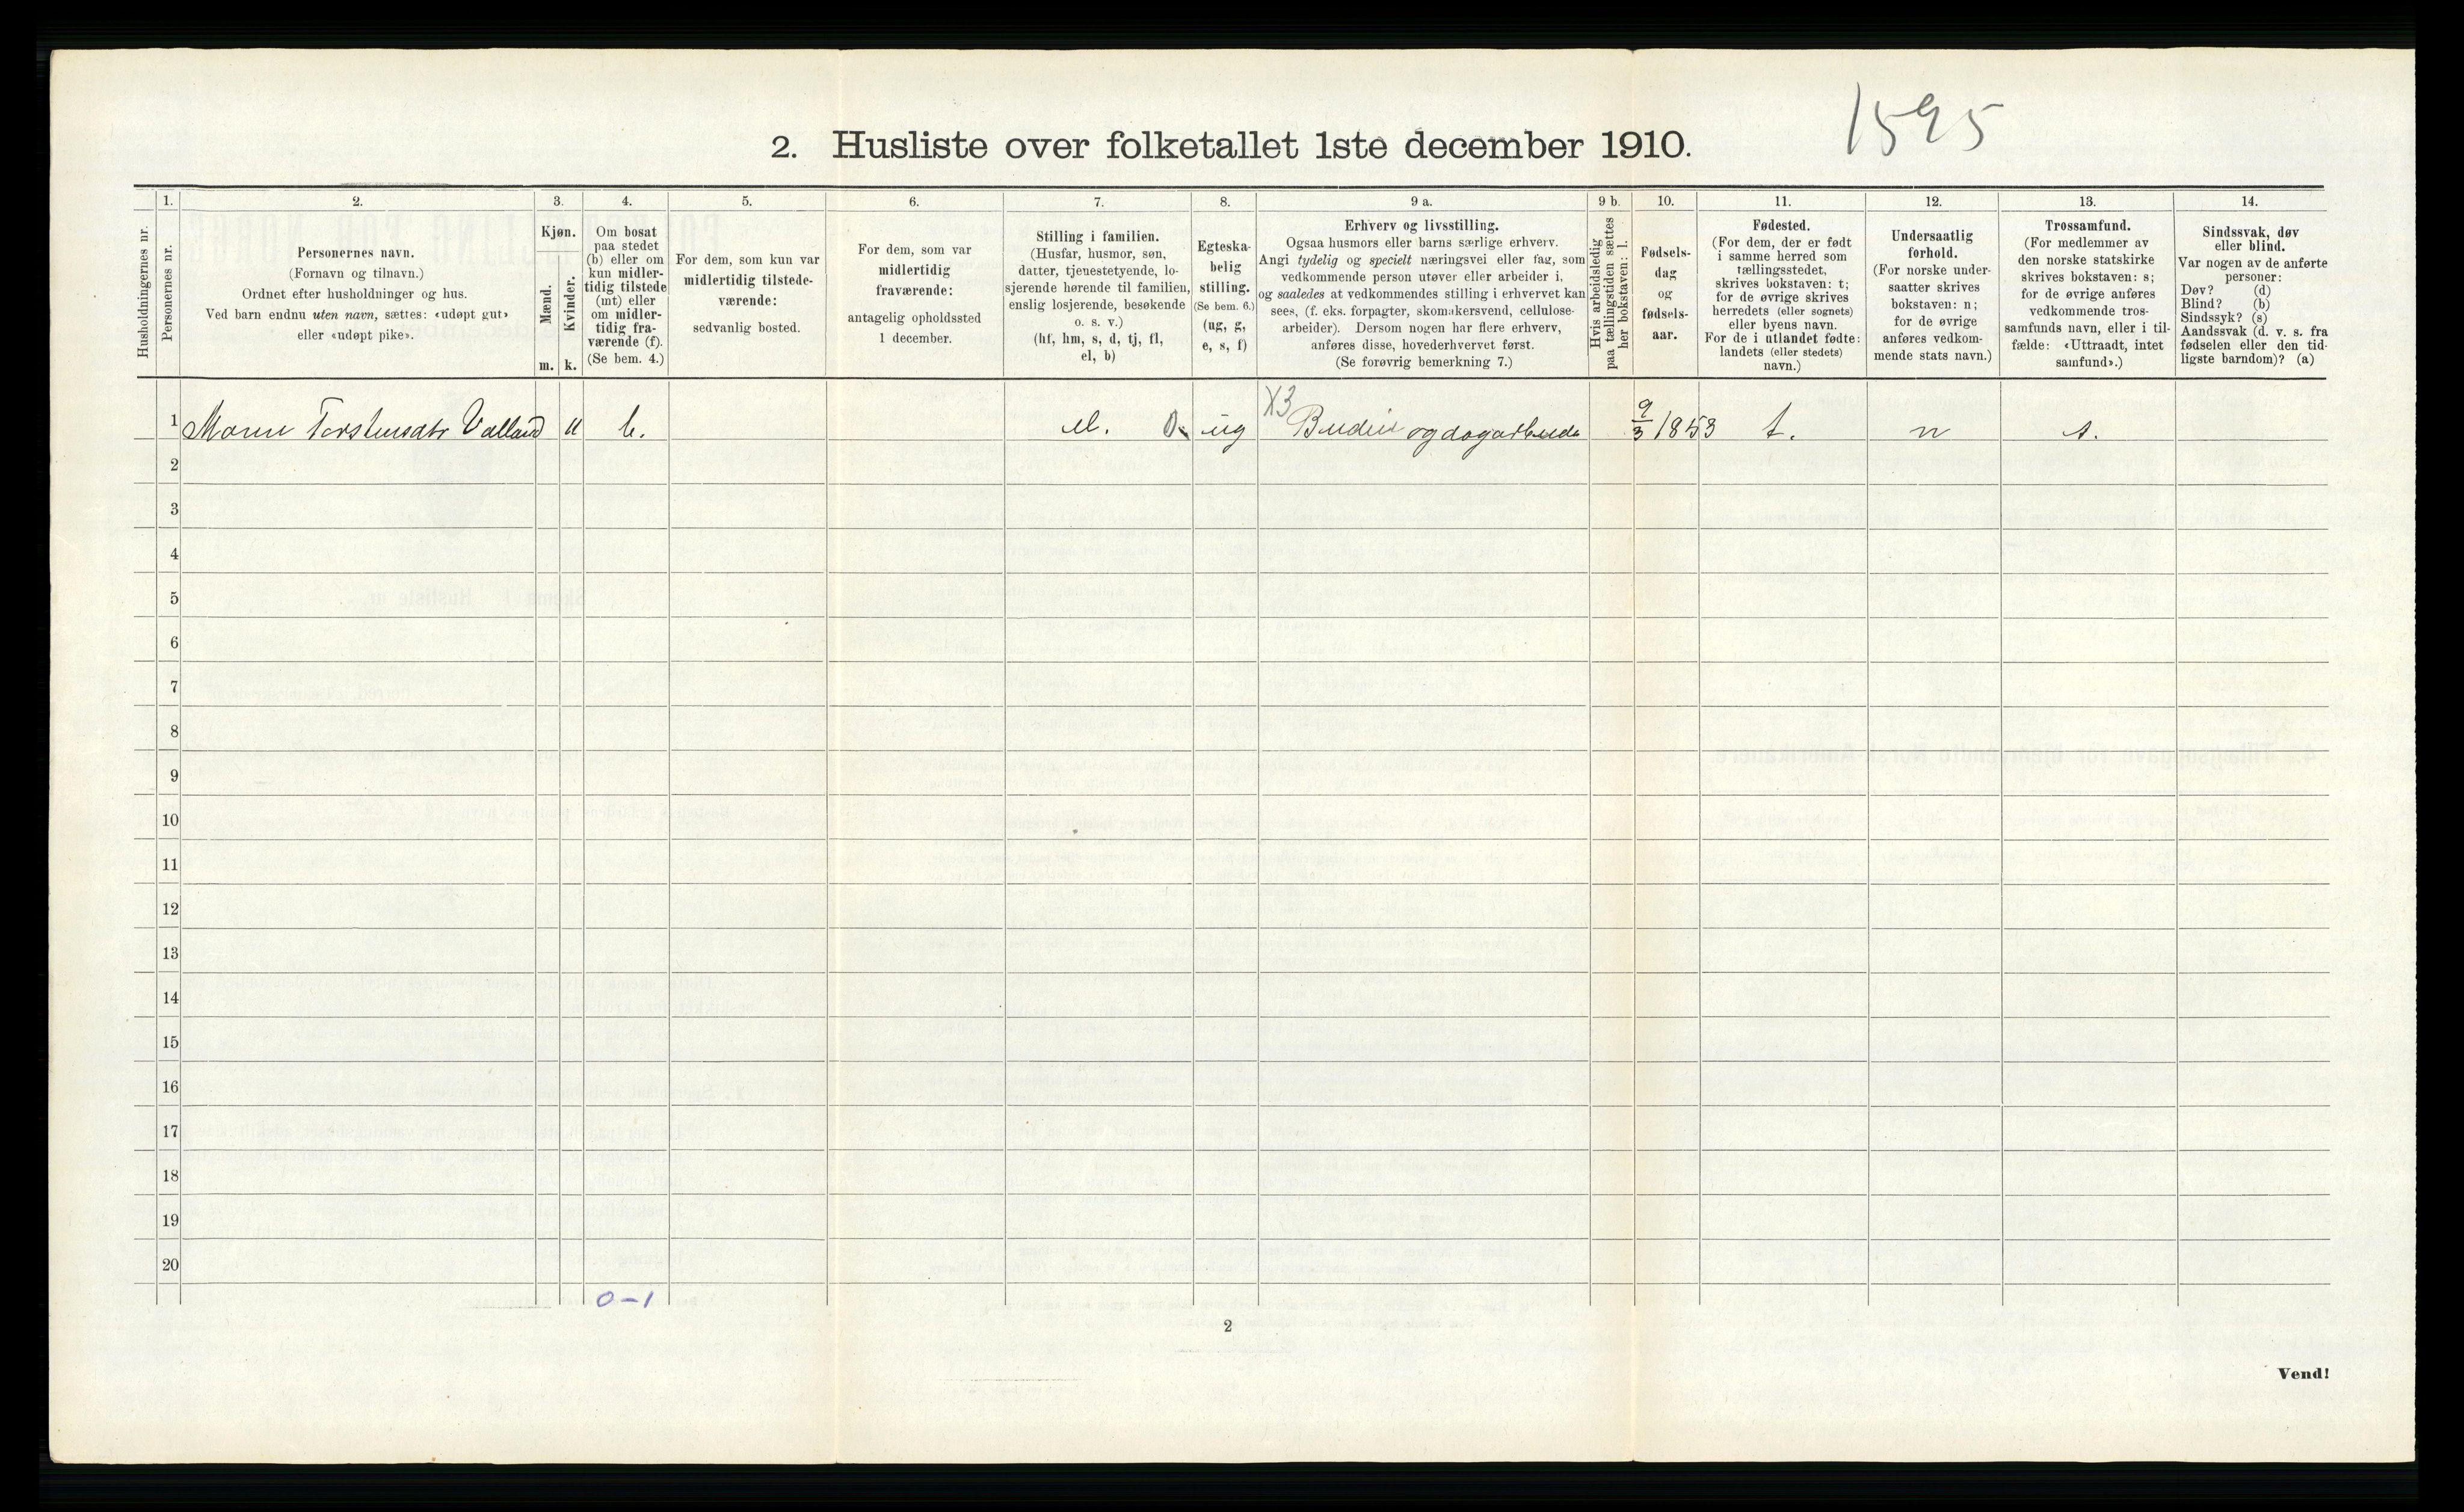 1595
2. Husliste over folketallet 1ste december 1910.
Husholdningernes nr.
1.
Personernes nr.
2.
Personernes navn.
(Fornavn og tilnavn.)
Ordnet efter husholdninger og hus.
Ved barn endnu uten navn, sættes: «udøpt gut»
eller «udøpt pike».
3.
Kjøn.
Mænd.
m.
Kvinder.
k.
4.
Om bosat
paa stedet
(b) eller om
kun midler-
tidig tilstede
(mt) eller
om midler-
tidig fra-
værende (f).
(Se bem. 4.)
5.
For dem, som kun var
midlertidig tilstede-
værende:
sedvanlig bosted.
6.
For dem, som var
midlertidig
fraværende:
antagelig opholdssted
1 december.
7.
Stilling i familien.
(Husfar, husmor, søn,
datter, tjenestetyende, lo-
sjerende hørende til familien,
enslig losjerende, besøkende
o. s. v.)
(hf, hm, s, d, tj, fl,
el, b)
8.
Egteska-
belig
stilling.
(Se bem. 6.)
(ug, g,
e, s, f)
9 a.
Erhverv og livsstilling.
Ogsaa husmors eller barns særlige erhverv.
Angi tydelig og specielt næringsvei eller fag, som
vedkommende person utøver eller arbeider i,
og saaledes at vedkommendes stilling i erhvervet kan
sees, (f. eks. forpagter, skomakersvend, cellulose-
arbeider). Dersom nogen har flere erhverv,
anføres disse, hovederhvervet først.
(Se forøvrig bemerkning 7.)
9 b.
Hvis arbeidsledig
paa tællingstiden sættes
her bokstaven: l.
10.
Fødsels-
dag
og
fødsels-
aar.
11.
Fødested.
(For dem, der er født
i samme herred som
tællingsstedet,
skrives bokstaven: t;
for de øvrige skrives
herredets (eller sognets)
eller byens navn.
For de i utlandet fødte:
landets (eller stedets)
navn.)
12.
Undersaatlig
forhold.
(For norske under-
saatter skrives
bokstaven: n;
for de øvrige
anføres vedkom-
mende stats navn.)
13.
Trossamfund.
(For medlemmer av
den norske statskirke
skrives bokstaven: s;
for de øvrige anføres
vedkommende tros-
samfunds navn, eller i til-
fælde: «Uttraadt, intet
samfund».)
14.
Sindssvak, døv
eller blind.
Var nogen av de anførte
personer:
Døv? (d)
Blind? (b)
Sindssyk? (s)
Aandssvak (d. v. s. fra
fødselen eller den tid-
ligste barndom)? (a)
1 Torstensdtr Valland b. el. ug X3 Budeie og dagarbeide 9/3 1853 t. n s.
2
3
4
5
6
7
8
9
10
11
12
13
14
15
16
17
18
19
20
0-1
2
Vend!